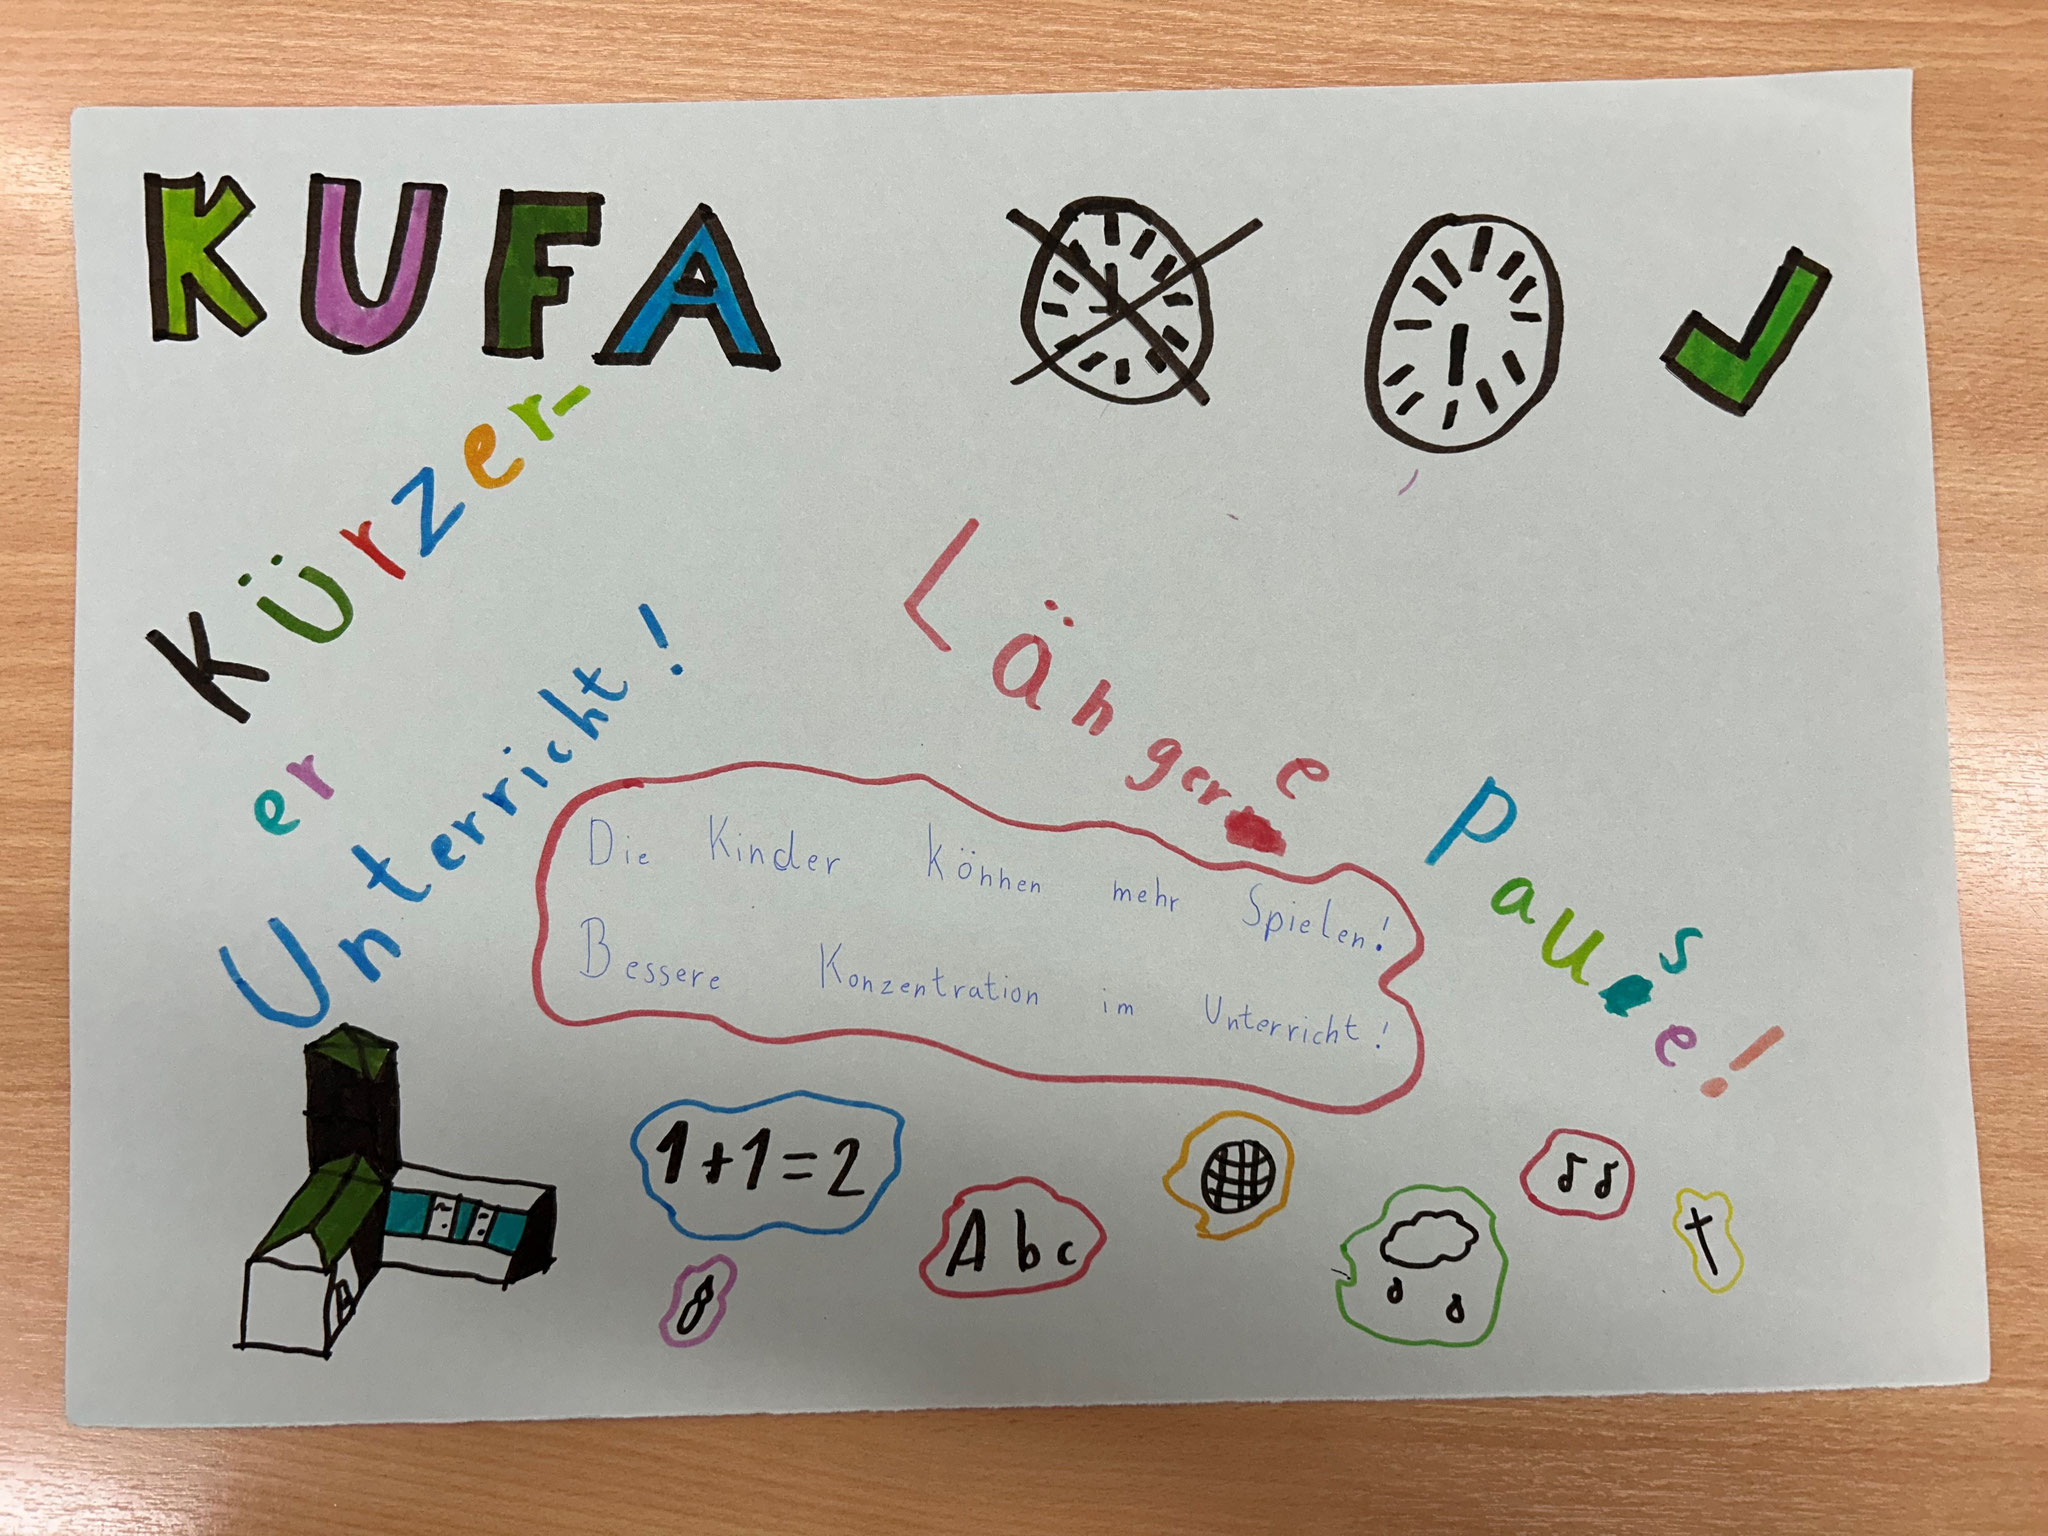 KUFA
Kürzer-
er
Unterricht!
Längere
Pause!
Die Kinder können mehr Spielen!
Bessere Konzentration im Unterricht!
1+1=2
Abc